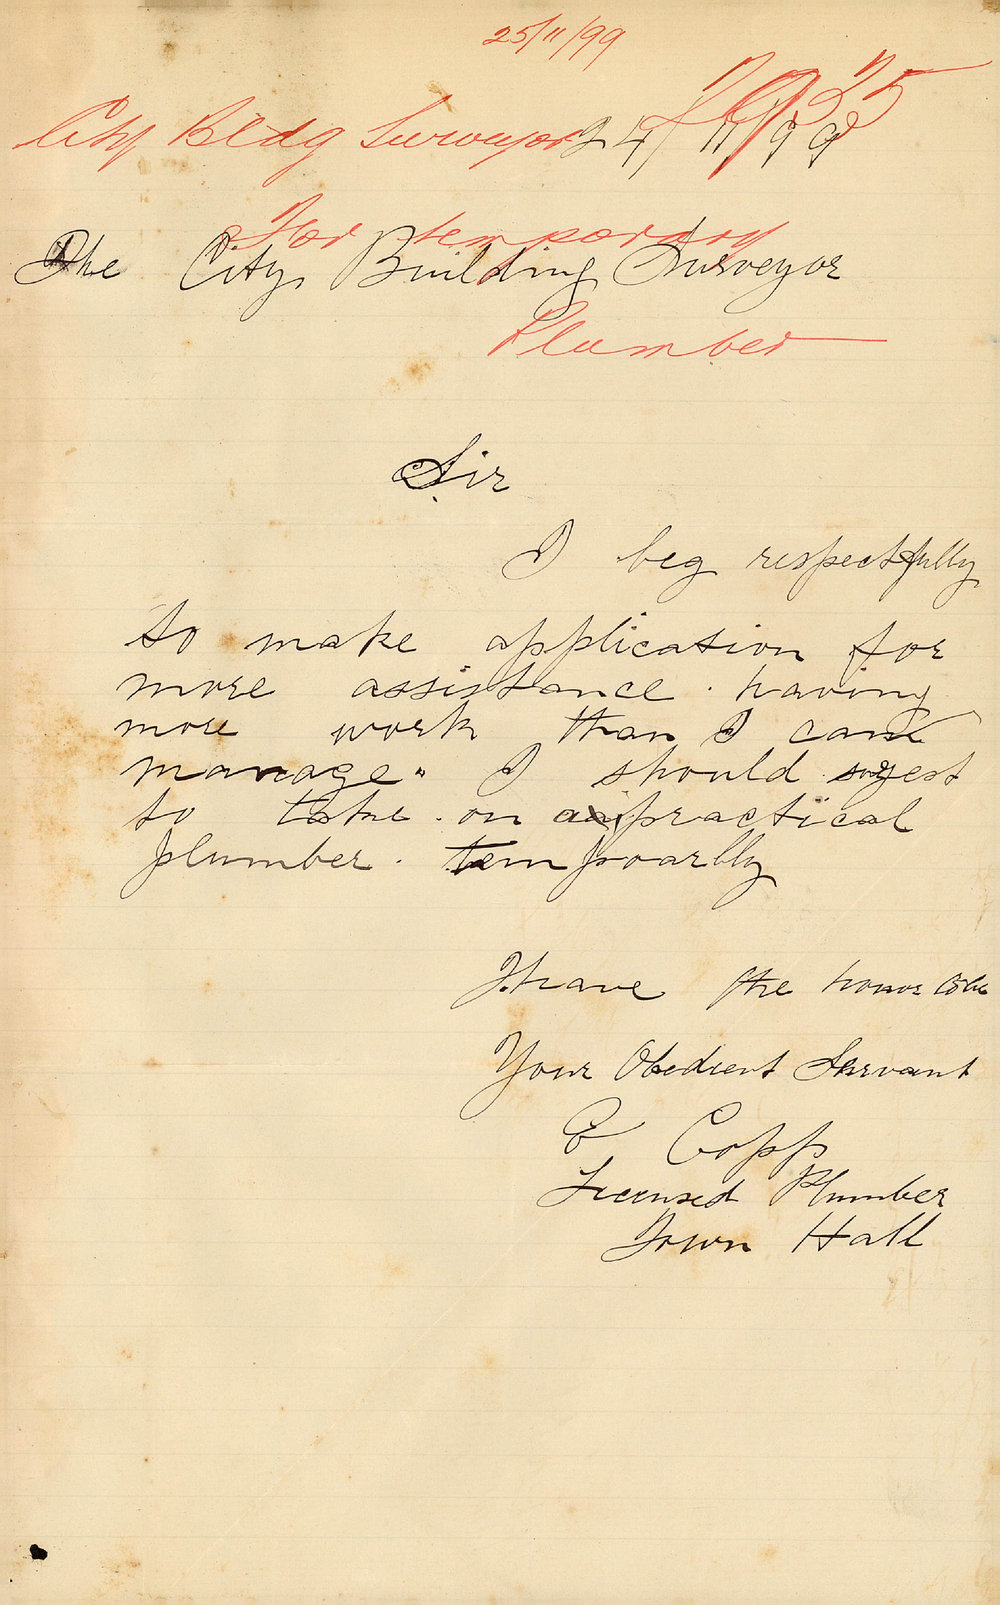 25/11/99
City Bldg Surveyor
24/11/99
For temporary
The City Building Surveyor
Plumber
Sir
I beg respectfully
to make application for
more assistance . having
more work than I can
manage. I should sugest
to take on a practical
plumber . tempoarlly
I have the honor to be
Your Obedient Servant
E Copp
Licensed Plumber
Town Hall